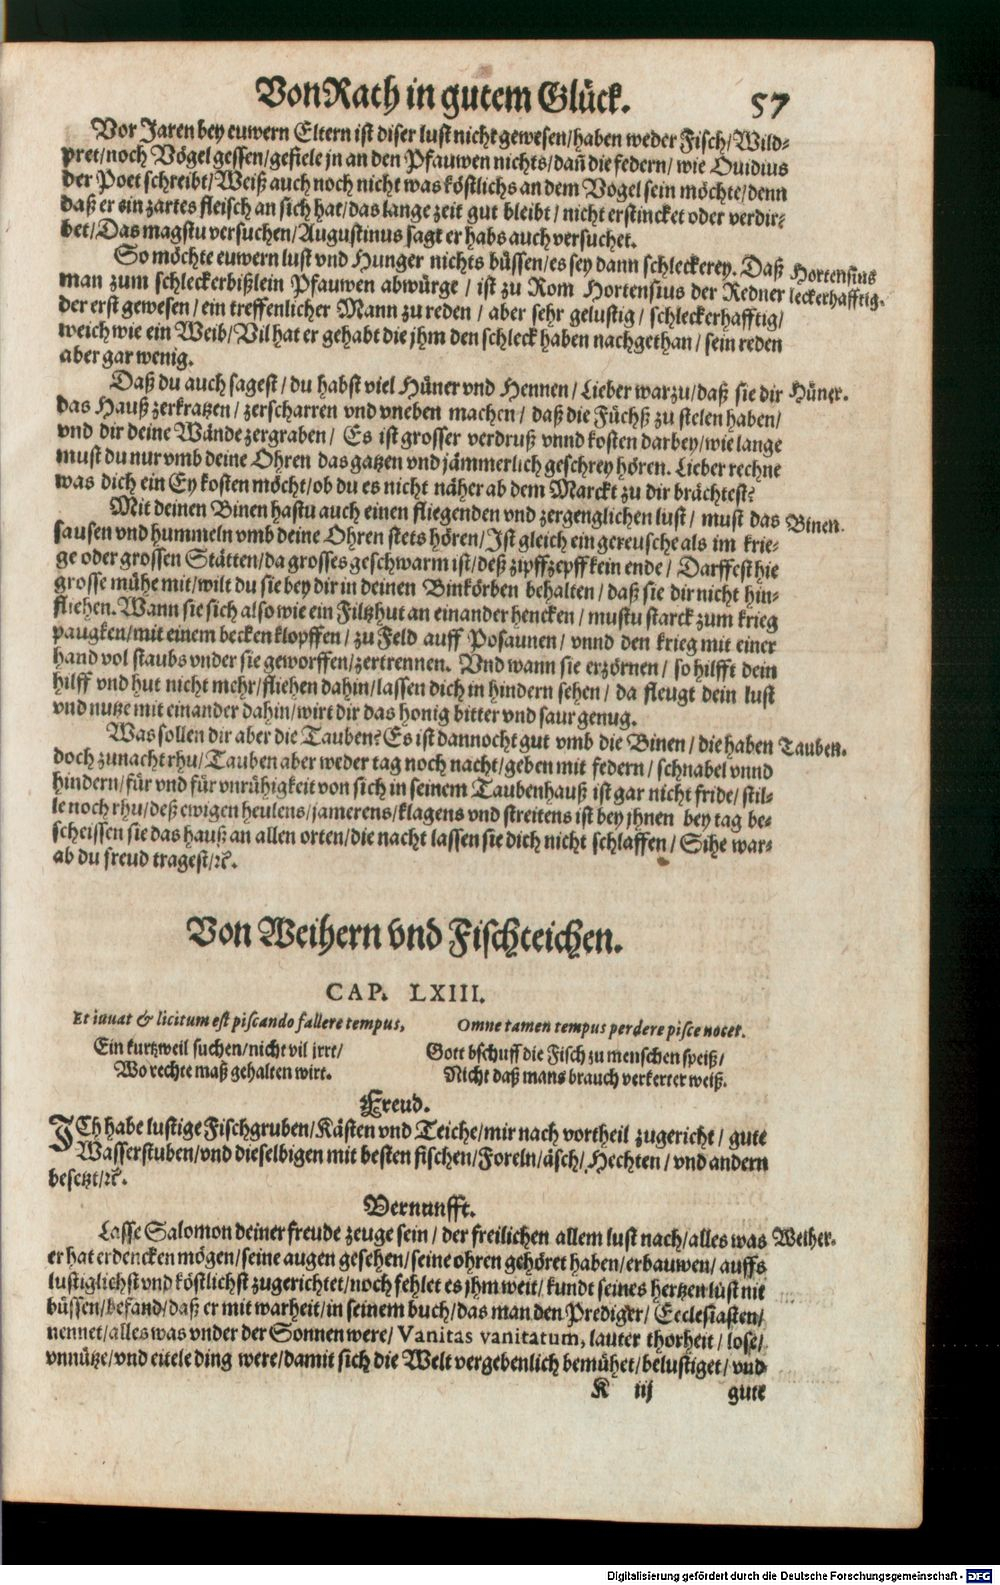 Von Rath in gutem Glück. 57
Vor Jaren bey euwern Eltern ist diser lust nicht gewesen/haben weder Fisch/Wild-
pret/noch Vögel gessen/gefiele jn an den Pfauwen nichts/dañ die federn/wie Ouidius
der Poet schreibt/Weiß auch noch nicht was köstlichs an dem Vogel sein möchte/denn
daß er ein zartes fleisch an sich hat/das lange zeit gut bleibt/nicht erstincket oder verdir-
bet/Das magstu versuchen/Augustinus sagt er habs auch versuchet.
So möchte euwern lust vnd Hunger nichts büssen/es sey dann schleckerey. Daß
man zum schleckerbißlein Pfauwen abwürge/ist zu Rom Hortensius der Redner
der erst gewesen/ein treffenlicher Mann zu reden/aber sehr gelustig/schleckerhafftig/
weich wie ein Weib/Vil hat er gehabt die jhm den schleck haben nachgethan/sein reden
aber gar wenig.
Hortensius
leckerhafftig.
Daß du auch sagest/du habst viel Hüner vnd Hennen/Lieber warzu/daß sie dir
das Hauß zerkratzen/zerscharren vnd vneben machen/daß die Füchß zu stelen haben/
vnd dir deine Wände zergraben/Es ist grosser verdruß vnnd kosten darbey/wie lange
must du nur vmb deine Ohren das gatzen vnd jämmerlich geschrey hören. Lieber rechne
was dich ein Ey kosten möcht/ob du es nicht näher ab dem Marckt zu dir brächtest?
Hüner.
Mit deinen Binen hastu auch einen fliegenden vnd zergenglichen lust/must das
sausen vnd hummeln vmb deine Ohren stets hören/Ist gleich ein gereusche als im krie-
ge oder grossen Stätten/da grosses geschwarm ist/deß zipffzepff kein ende/Darffest hie
grosse mühe mit/wilt du sie bey dir in deinen Binkörben behalten/daß sie dir nicht hin-
fliehen. Wann sie sich also wie ein Filtzhut an einander hencken/mustu starck zum krieg
paugken/mit einem becken klopffen/zu Feld auff Posaunen/vnnd den krieg mit einer
hand vol staubs vnder sie geworffen/zertrennen. Vnd wann sie erzörnen/so hilfft dein
hilff vnd hut nicht mehr/fliehen dahin/lassen dich in hindern sehen/da fleugt dein lust
vnd nutze mit einander dahin/wirt dir das honig bitter vnd saur genug.
Binen.
Was sollen dir aber die Tauben? Es ist dannocht gut vmb die Binen/die haben
doch zunacht rhu/Tauben aber weder tag noch nacht/geben mit federn/schnabel vnnd
hindern/für vnd für vnrühigkeit von sich in seinem Taubenhauß ist gar nicht fride/stil-
le noch rhu/deß ewigen heulens/jamerens/klagens vnd streitens ist bey jhnen bey tag be-
scheissen sie das hauß an allen orten/die nacht lassen sie dich nicht schlaffen/Sihe war-
ab du freud tragest/ꝛc.
Tauben.
Von Weihern vnd Fischteichen.
CAP. LXIII.
Et iuuat & licitum est piscando fallere tempus,
Omne tamen tempus perdere pisce nocet.
Ein kurtzweil suchen/nicht vil jrrt/
Wo rechte maß gehalten wirt.
Gott bschuff die Fisch zu menschen speiß/
Nicht daß mans brauch verkerter weiß.
Freud.
ICh habe lustige Fischgruben/Kästen vnd Teiche/mir nach vortheil zugericht/gute
Wasserstuben/vnd dieselbigen mit besten fischen/Foreln/äsch/Hechten/vnd andern
besetzt/ꝛc.
Vernunfft.
Lasse Salomon deiner freude zeuge sein/der freilichen allem lust nach/alles was
er hat erdencken mögen/seine augen gesehen/seine ohren gehöret haben/erbauwen/auffs
lustiglichst vnd köstlichst zugerichtet/noch fehlet es jhm weit/kundt seines hertzen lüst nit
büssen/befand/daß er mit warheit/in seinem buch/das man den Prediger/Ecclesiasten/
nennet/alles was vnder der Sonnen were/Vanitas vanitatum, lauter thorheit/lose/
vnnütze/vnd eitele ding were/damit sich die Welt vergebenlich bemühet/belustiget/vnd
Weiher.
K iij gute
Digitalisierung gefördert durch die Deutsche Forschungsgemeinschaft - DFG